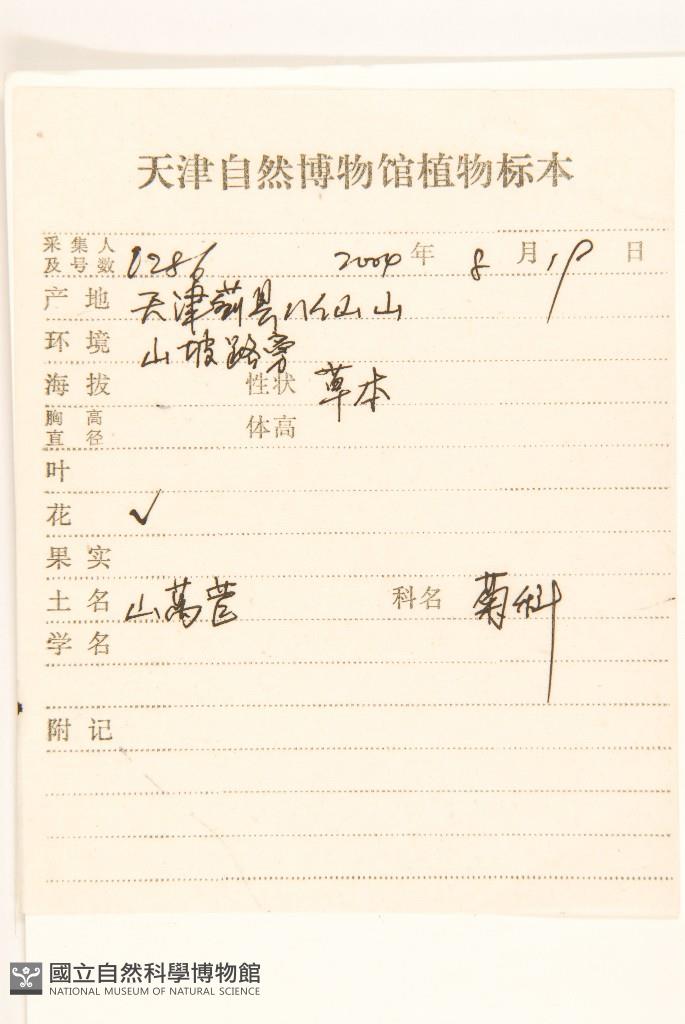 天津自然博物馆植物标本
采集人及号数 0286 2004年8月19日
产地 天津蓟县八仙山
环境 山坡路旁
海拔 性状 草本
胸高直径 体高
叶
花 ✓
果实
土名 山莴苣 科名 菊科
学名
附记
國立自然科學博物館
NATIONAL MUSEUM OF NATURAL SCIENCE